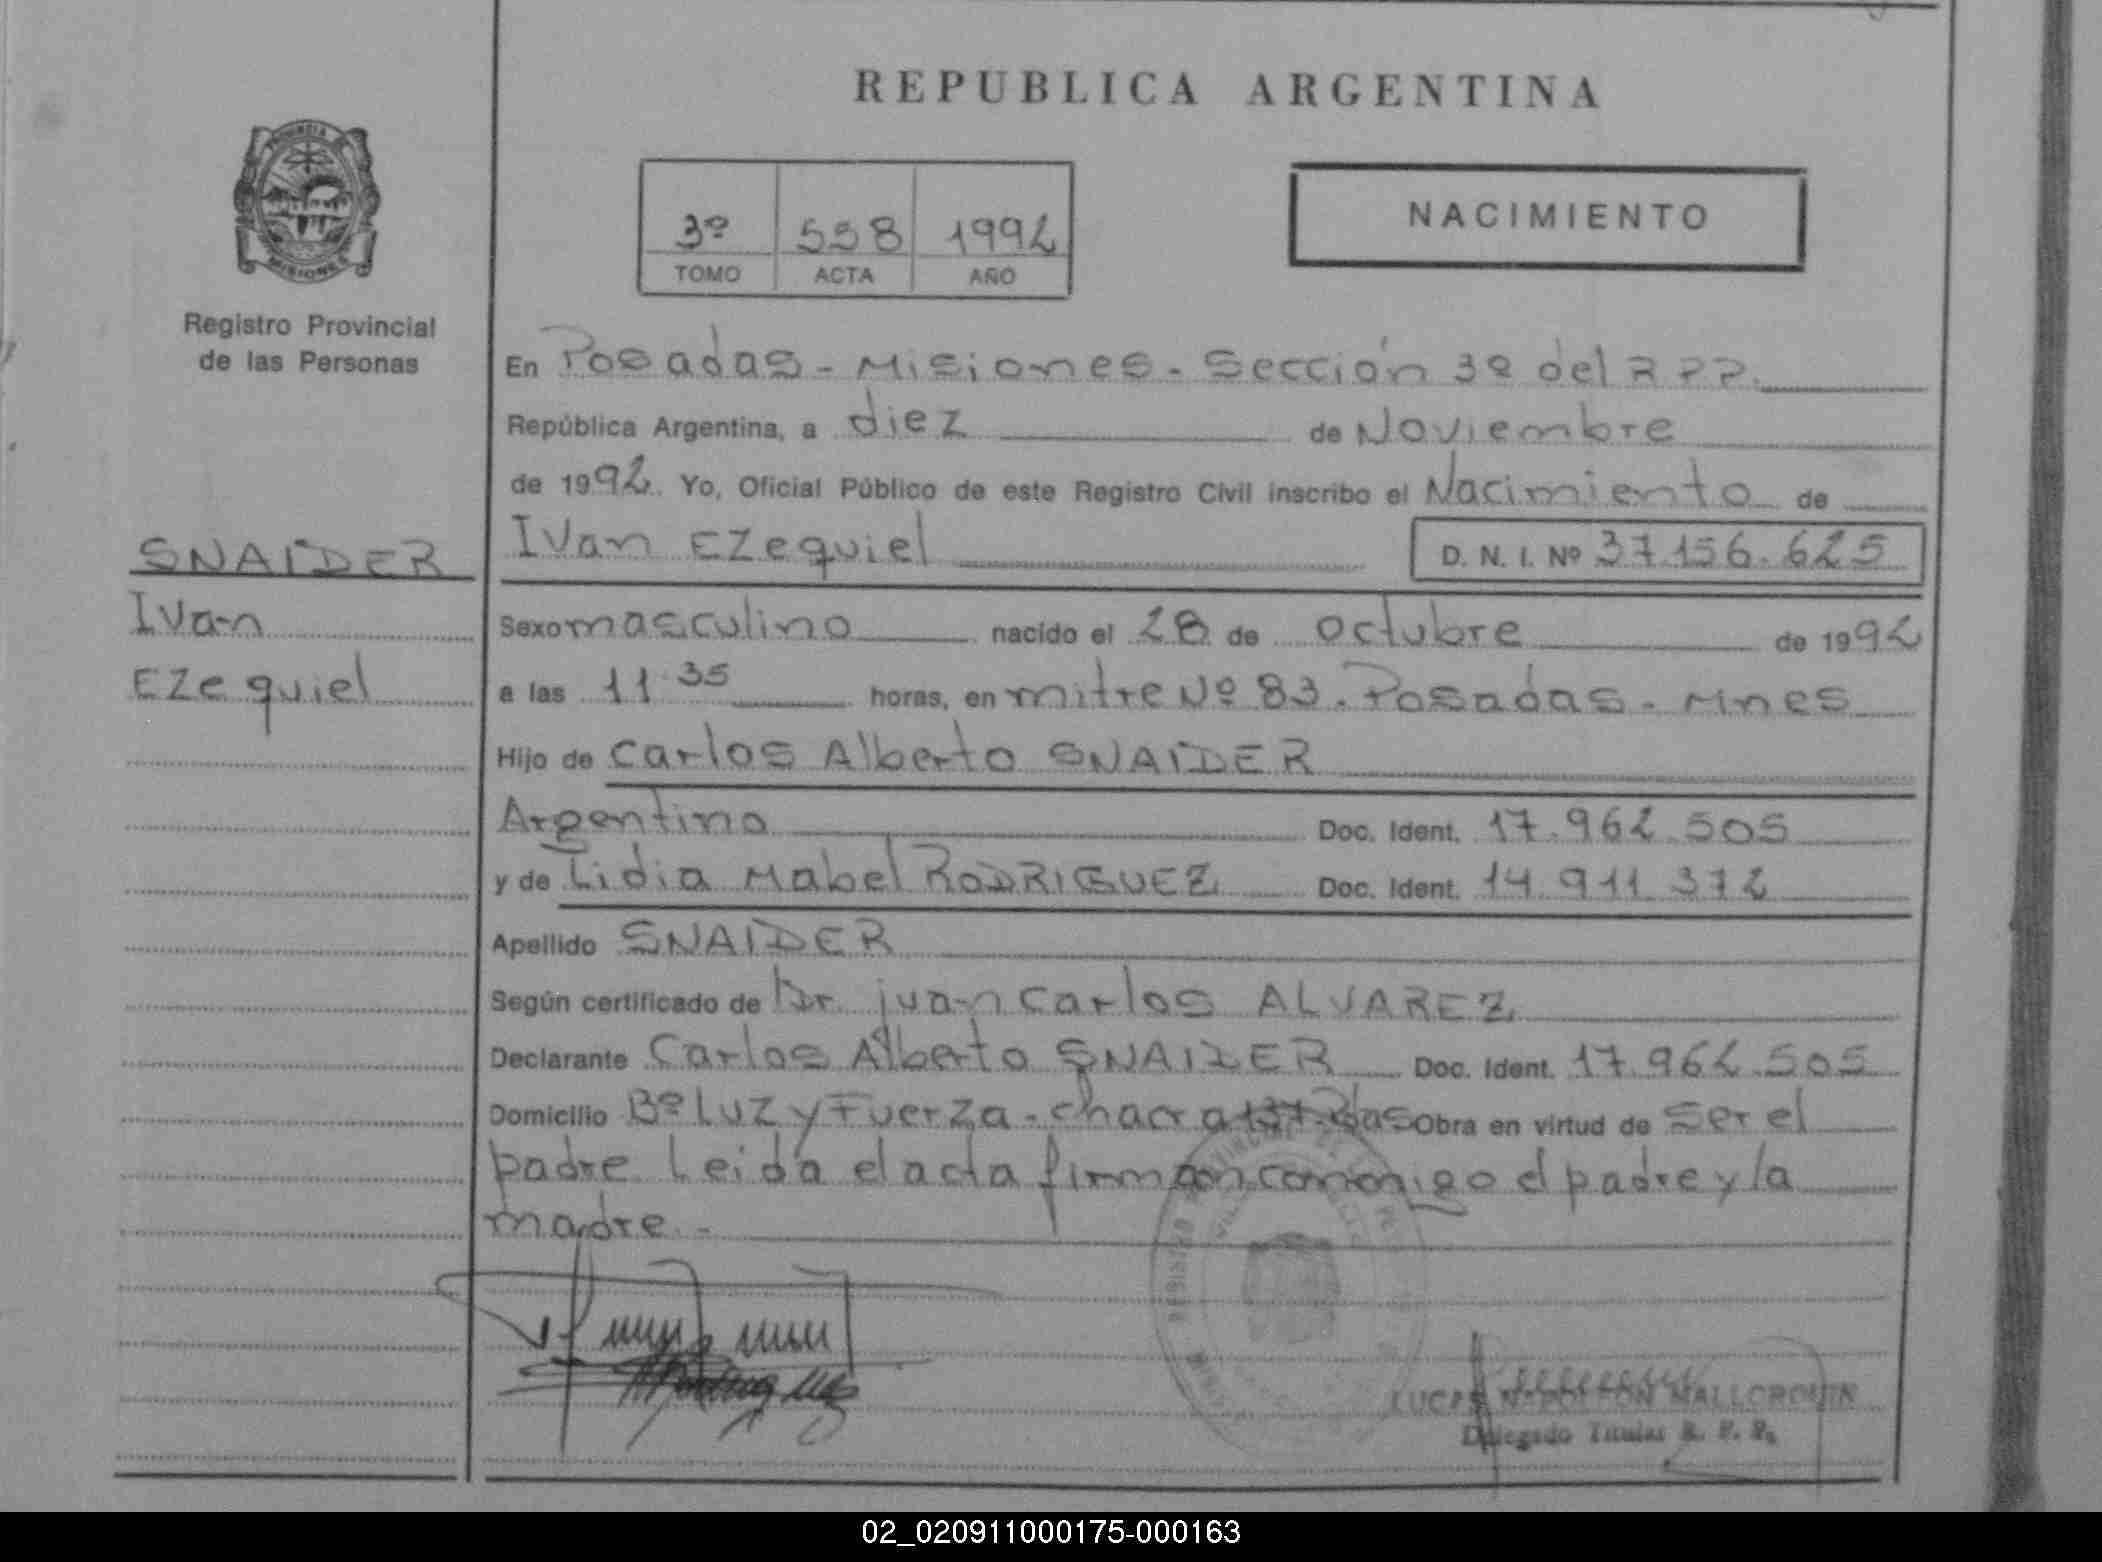 REPUBLICA ARGENTINA
PROVINCIA
MISIONES
Registro Provincial
de las Personas
3º 558 1992
TOMO ACTA AÑO
NACIMIENTO
En Posadas - Misiones - Sección 3º del RPP.
República Argentina, a diez de Noviembre
de 1992. Yo, Oficial Público de este Registro Civil inscribo el Nacimiento de
SNAIDER
Ivan
Ezequiel
Ivan Ezequiel D. N. I. Nº 37.156.625
Sexo masculino nacido el 28 de octubre de 1992
a las 11 35 horas, en mitre Nº 83. Posadas - Mnes
Hijo de Carlos Alberto SNAIDER
Argentino Doc. Ident. 17.962.505
y de Lidia Mabel RODRIGUEZ Doc. Ident. 14.911.372
Apellido SNAIDER
Según certificado de Dr. juan Carlos ALVAREZ
Declarante Carlos Alberto SNAIDER Doc. Ident. 17.962.505
Domicilio Bº Luz y Fuerza - chacra 137 Pdas Obra en virtud de ser el
padre. Leida el acta firman conmigo el padre y la
madre. -
LUCAS MALLORQUIN
Delegado Titular R. P. P.
02_020911000175-000163